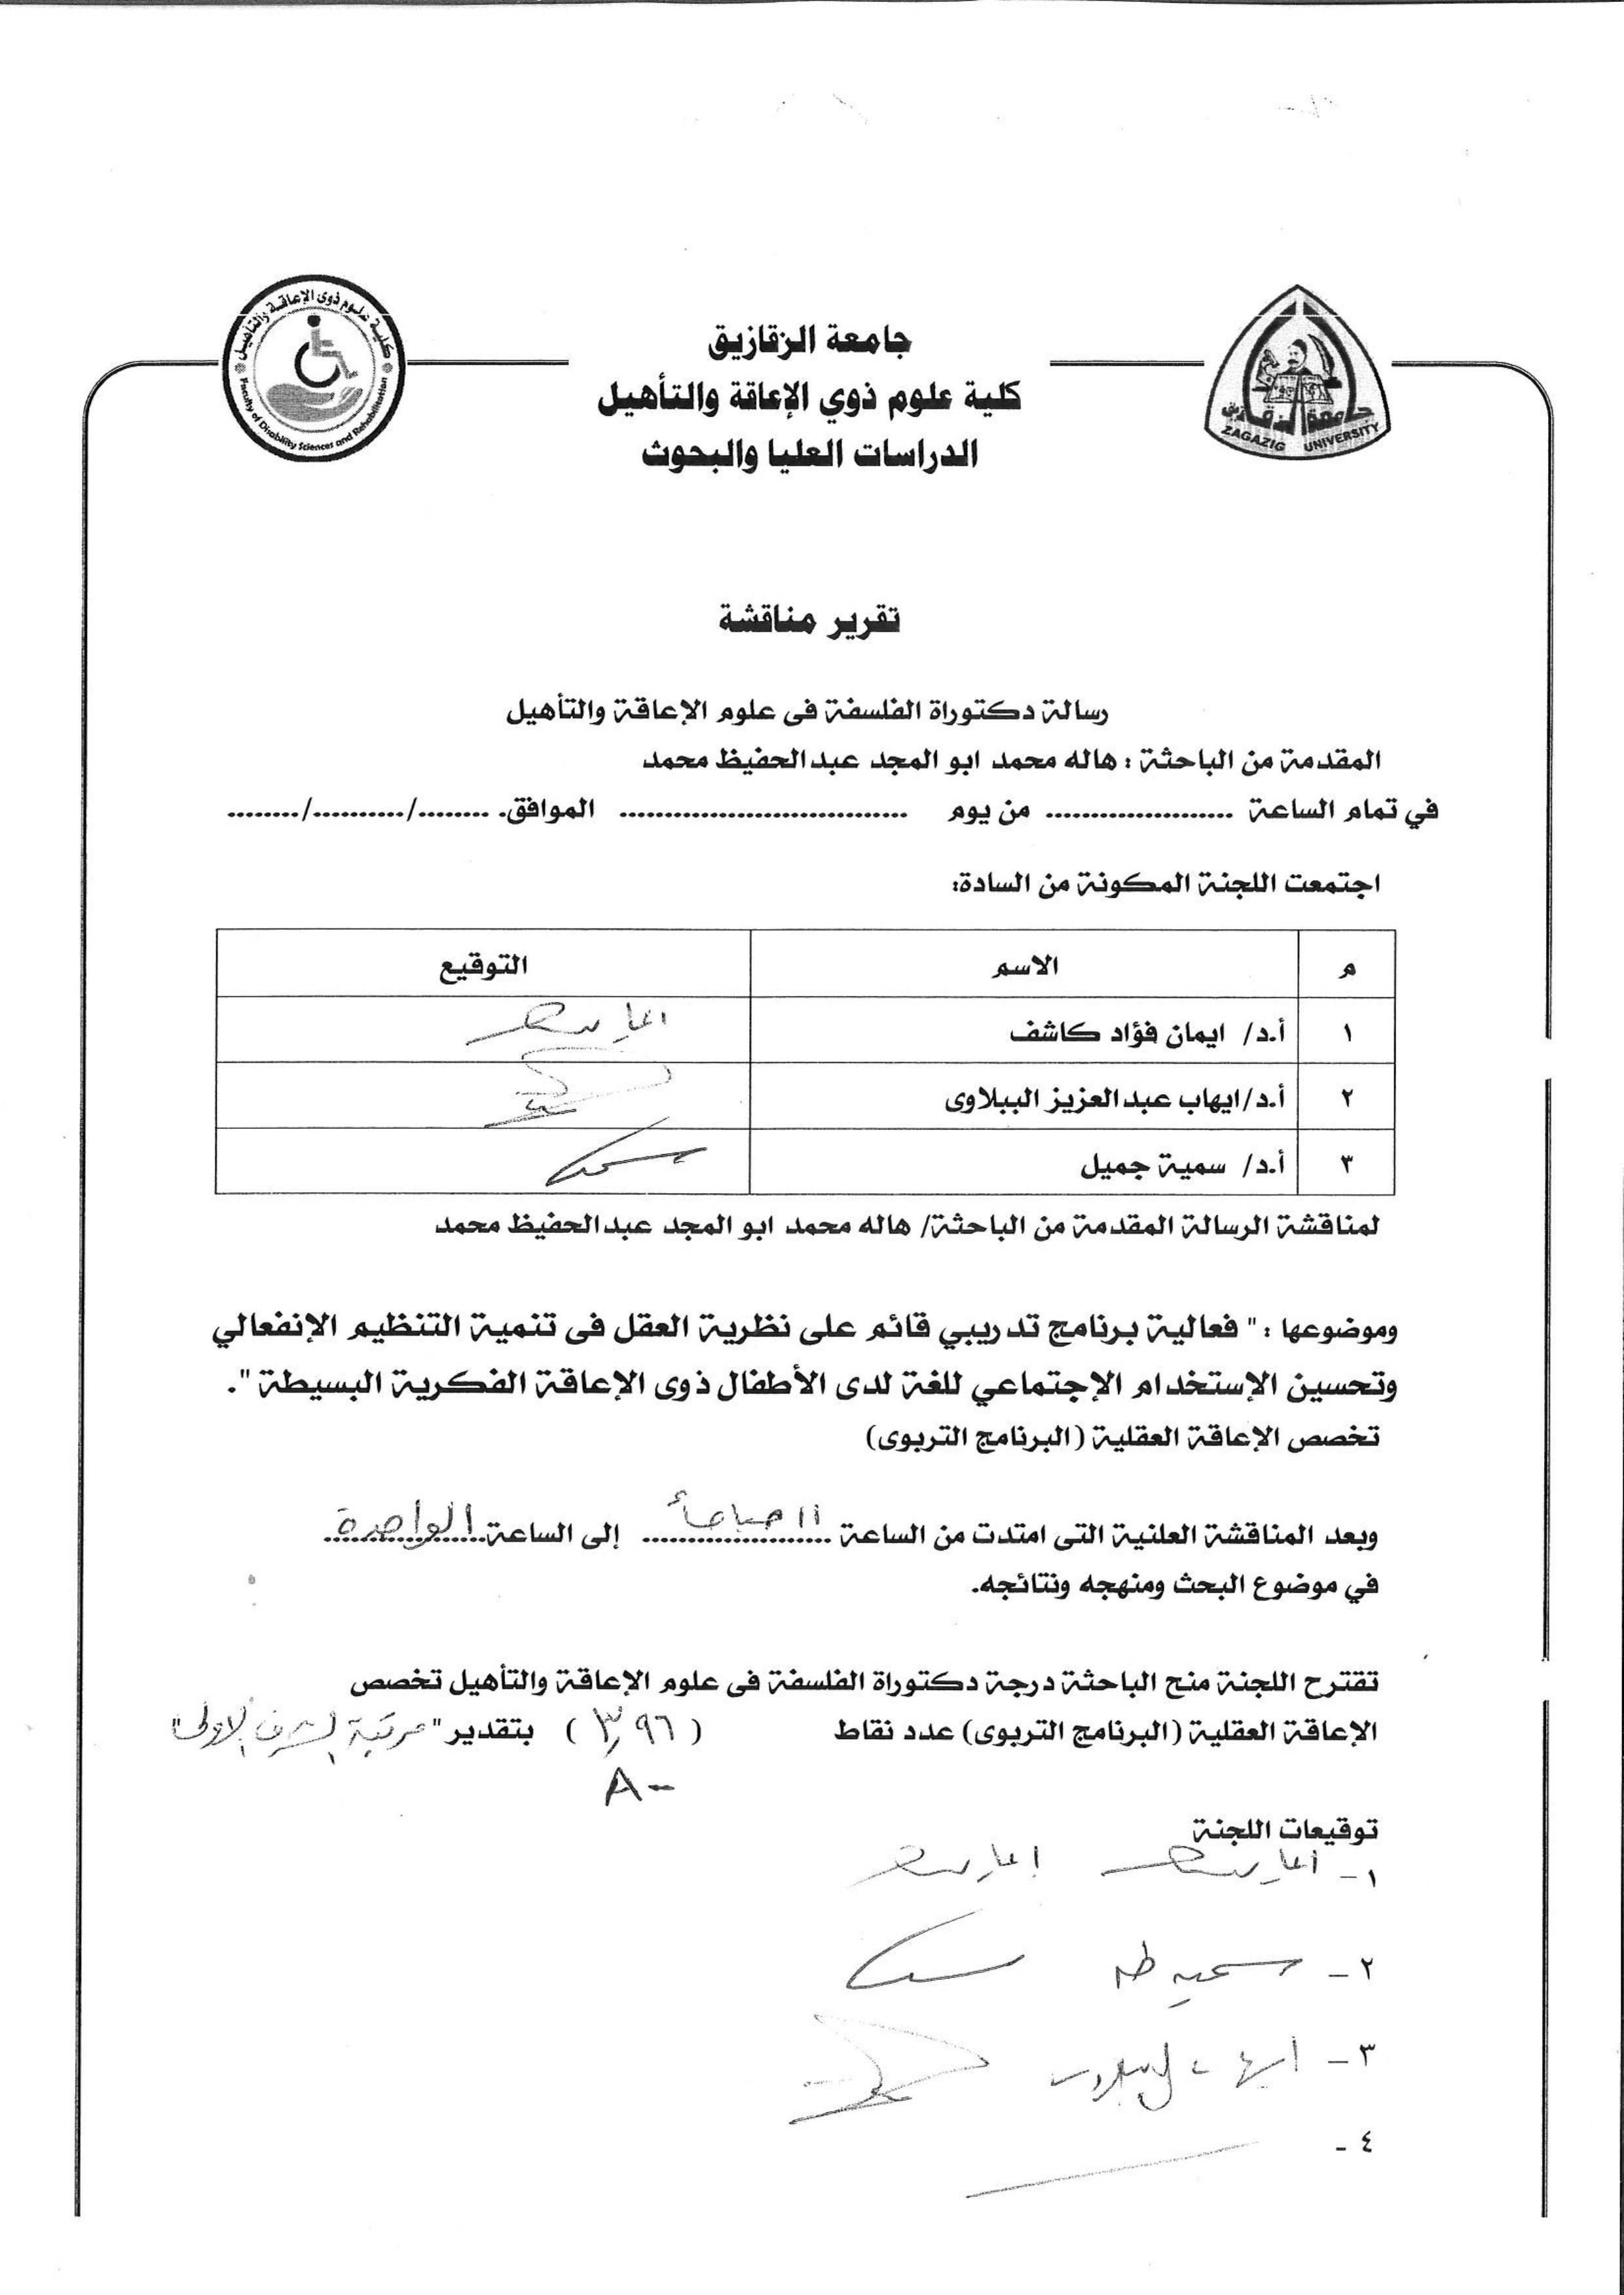 جامعة الزقازيق
كلية علوم ذوي الإعاقة والتأهيل
الدراسات العليا والبحوث
كلية علوم ذوى الإعاقة والتأهيل
Faculty of Disability Sciences and Rehabilitation
جامعة الزقازيق
ZAGAZIG UNIVERSITY
تقرير مناقشة
رسالة دكتوراة الفلسفة فى علوم الإعاقة والتأهيل
المقدمة من الباحثة : هاله محمد ابو المجد عبدالحفيظ محمد
في تمام الساعة ..................... من يوم ................................ الموافق. ......../........../........
اجتمعت اللجنة المكونة من السادة:
م الاسم التوقيع
١ أ.د/ ايمان فؤاد كاشف
٢ أ.د/ايهاب عبدالعزيز الببلاوى
٣ أ.د/ سمية جميل
لمناقشة الرسالة المقدمة من الباحثة/ هاله محمد ابو المجد عبدالحفيظ محمد
وموضوعها : " فعالية برنامج تدريبي قائم على نظرية العقل فى تنمية التنظيم الإنفعالي
وتحسين الإستخدام الإجتماعي للغة لدى الأطفال ذوى الإعاقة الفكرية البسيطة ".
تخصص الإعاقة العقلية (البرنامج التربوى)
وبعد المناقشة العلنية التى امتدت من الساعة ١١ صباحاً إلى الساعة الواحدة
في موضوع البحث ومنهجه ونتائجه.
تقترح اللجنة منح الباحثة درجة دكتوراة الفلسفة فى علوم الإعاقة والتأهيل تخصص
الإعاقة العقلية (البرنامج التربوى) عدد نقاط ( ٣,٩٦ ) بتقدير "مرتبة الشرف الاولى"
A-
توقيعات اللجنة
١-
٢- سميه طه
٣- ايهاب الببلاوى
٤-